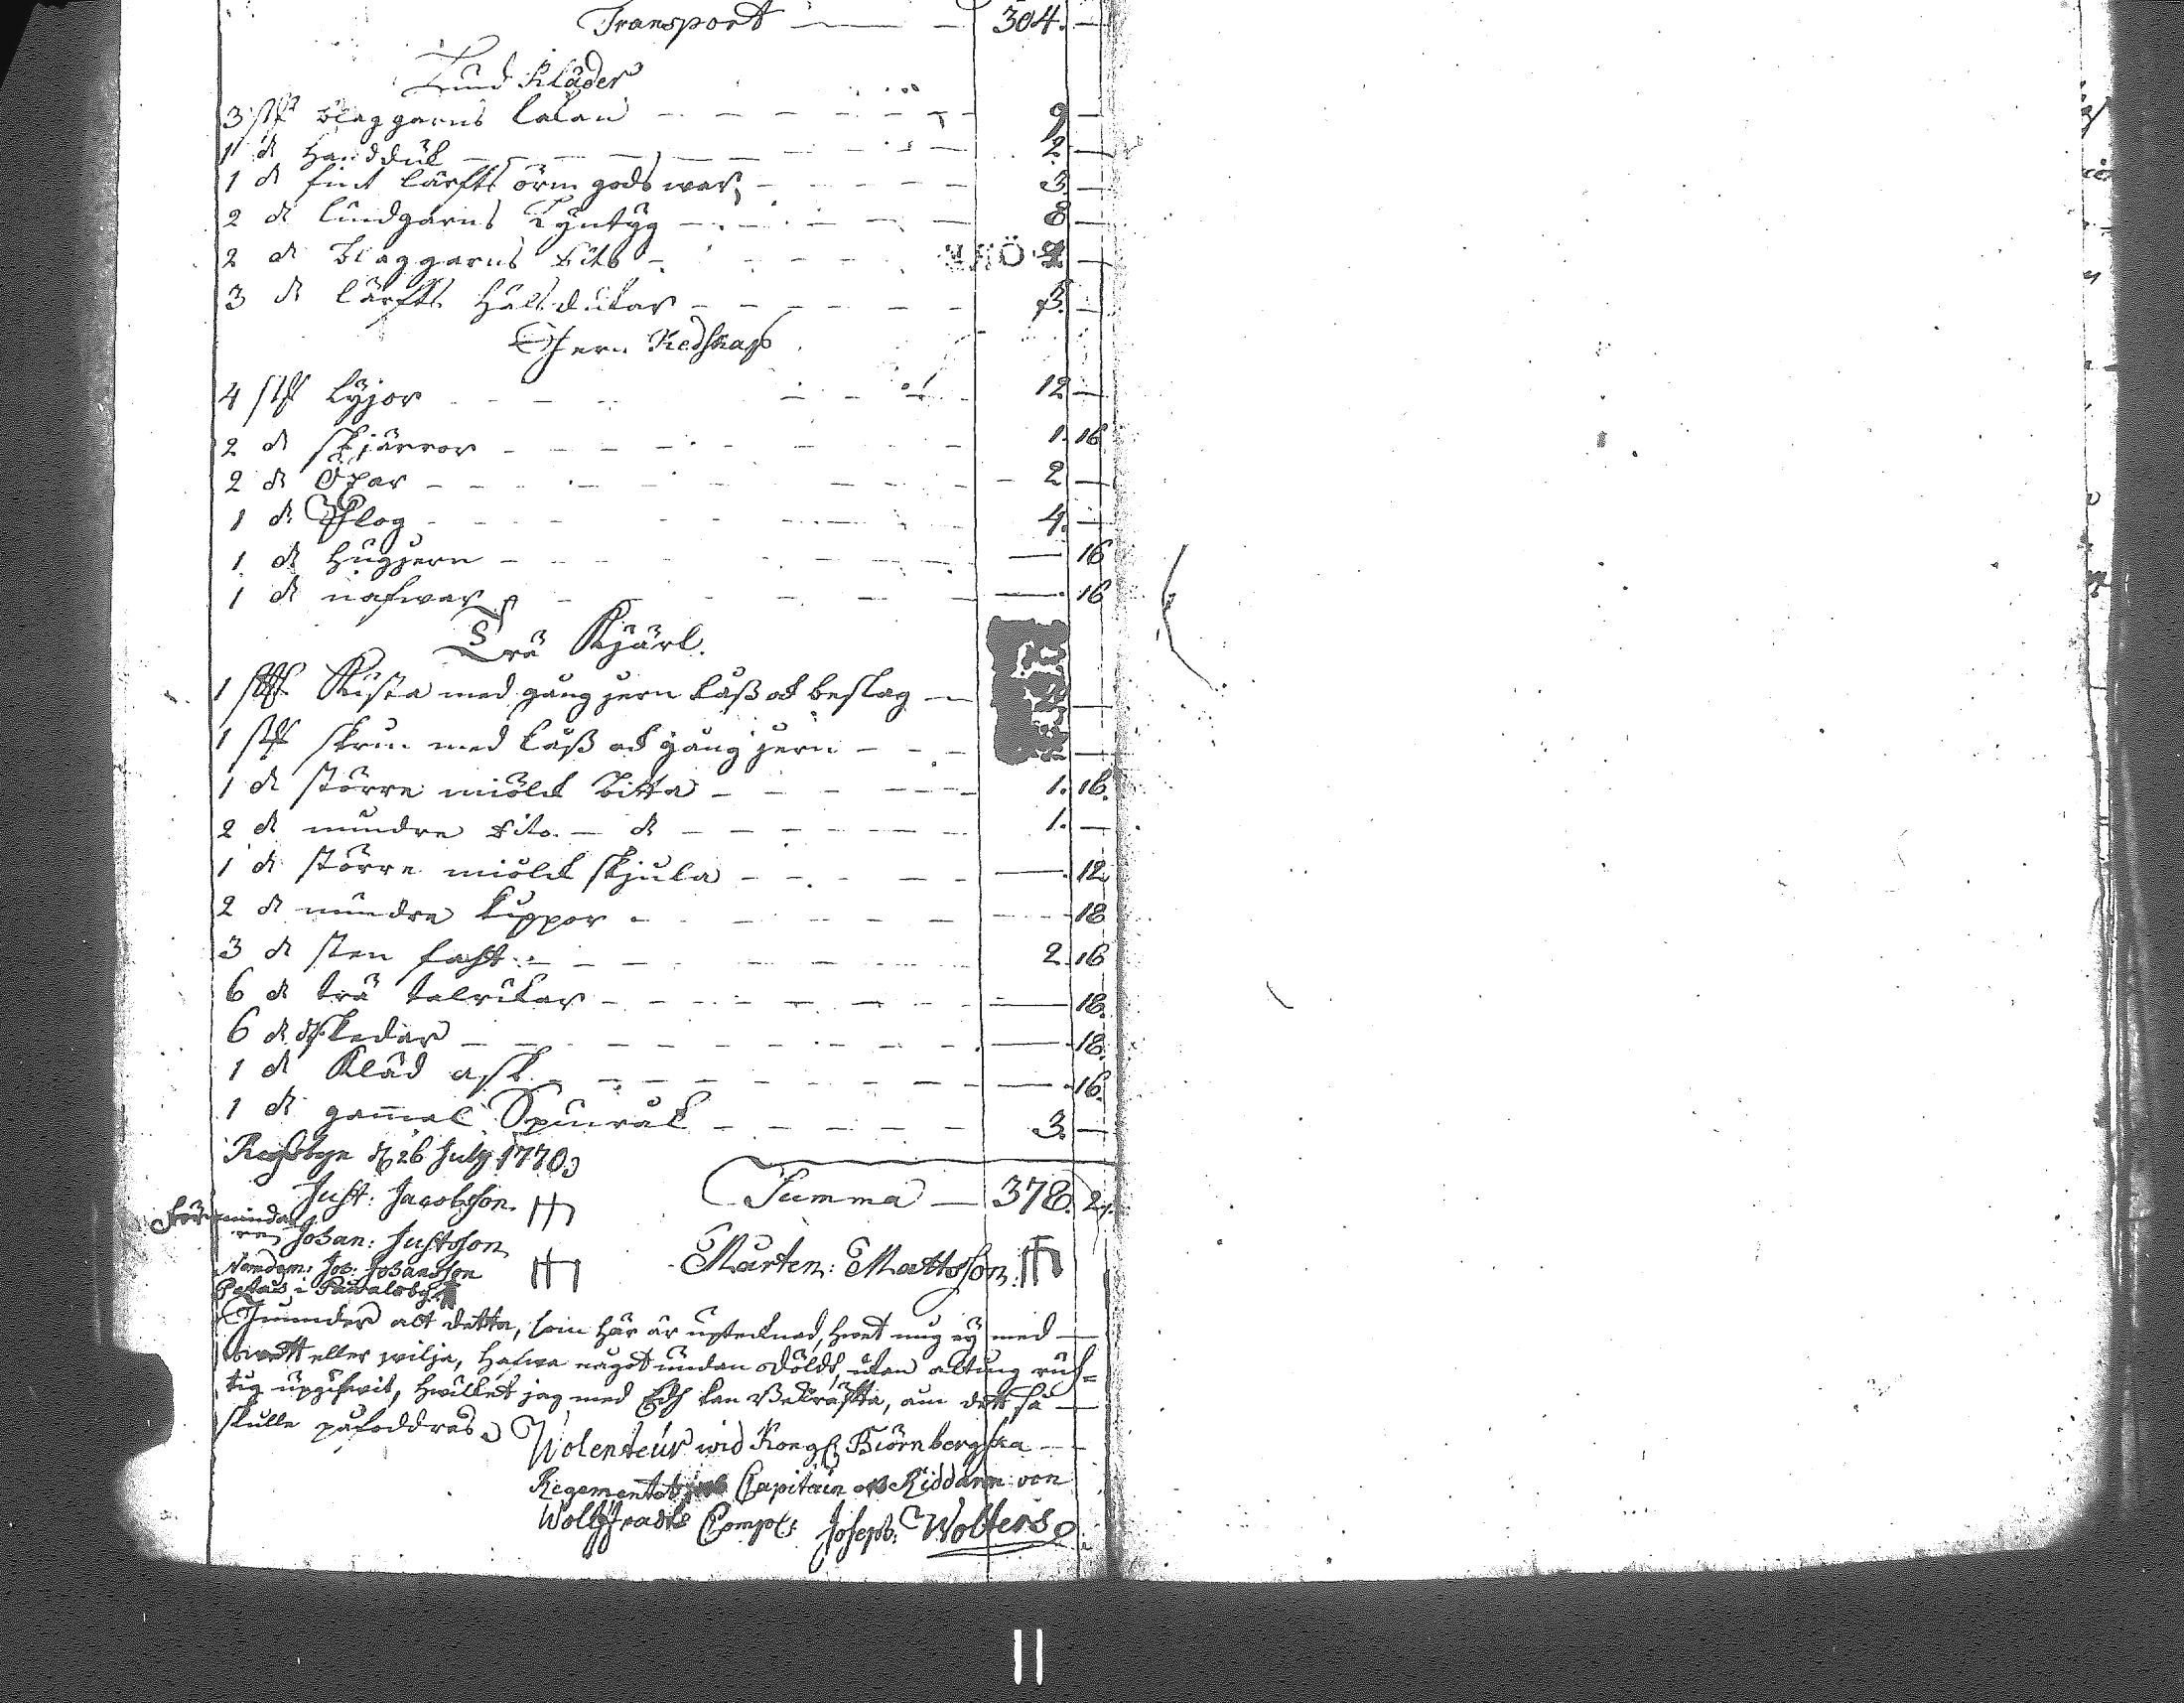 Transport — 304. —
Lin Kläder
3 st: blaggarns lakan — 9 —
1 d: handduk — 2 —
1 d: fint lärfts örngodswar — 3 —
2 d: lindgarns — 8 —
2 d: blaggarns dito —
3 d: lärfts halsdukar — 3. —
Jern Redskap
4 st: lyjor — 12 —
2 d: skjäror — 1. 16
2 d: öxar — 2 —
1 d: Plog — 4. —
1 d: huggjern — 16
1 d: nafwar — 16
Trä Kjärl.
1 st: Kista med gång jern låß ock beslag —
1 st: skrin med låß ock gång jern —
1 d: större miölck bitta — 1. 16.
2 d: mindre dito — d: — 1. —
1 d: större miölck skjula — 12.
2 d: mindre kippor — 18
3 d: sten faht — 2. 16
6 d: trä talrikar — 18.
6 d: d: skedar — 18.
1 d: Kläd ask — 16.
1 d: gammal Spinråk — 3. —
d: 26 July 1770
Summa — 378. 2.
Just: Jacobsson
Förmindare Johan: Justsson
Nämdem: Jos: Johansson
i
Mårten: Mattsson
alt detta, som här är uptecknad, hwet mig ej med
wett eller wilja, hafwa något undan döldt, utan alting rick=
tig upgifwit, hwilket jag med Edh kan Bekräfta, om dett så
skulle påfoddras
Wolenteur wid Kongl Biörnbergska
Regementet Capitain och Riddaren von
Wolffradts Comp: Joseph: Wolters
11